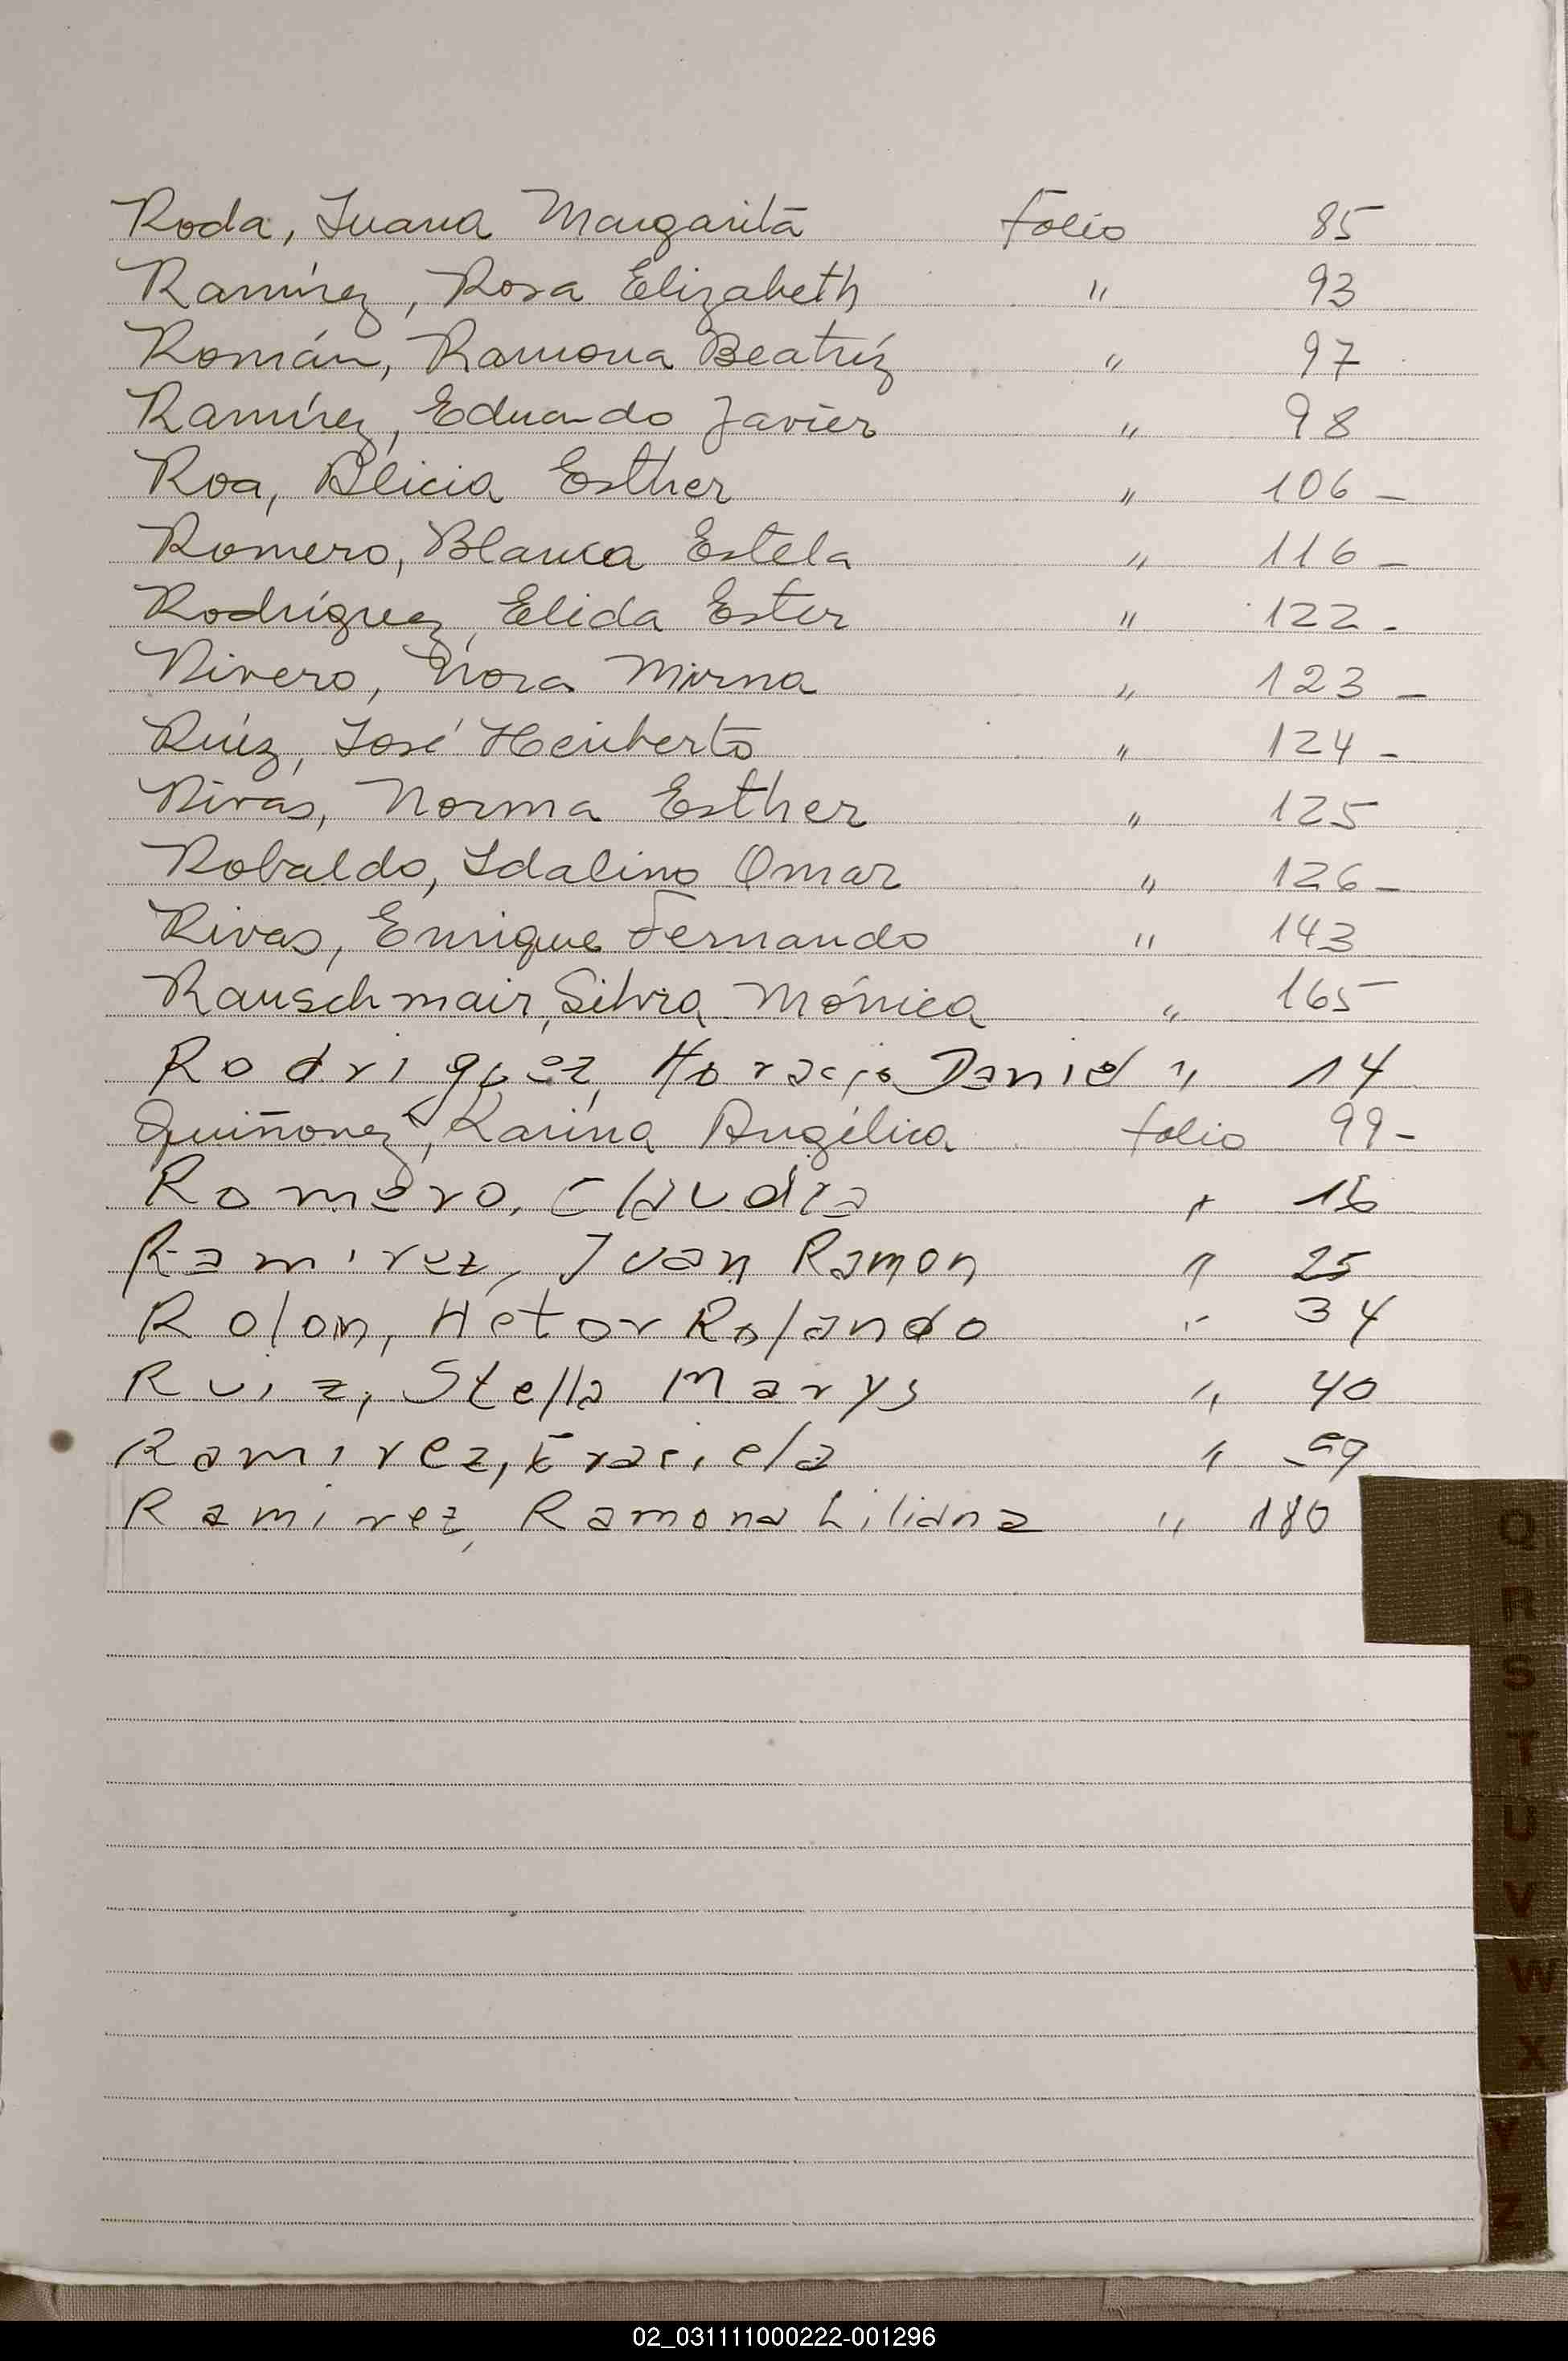 Roda, Juana Margarita folio 85
Ramírez, Rosa Elizabeth " 93
Román, Ramona Beatríz " 97
Ramírez, Eduardo Javier " 98
Roa, Alicia Esther " 106 -
Romero, Blanca Estela " 116 -
Rodríguez, Elida Ester " 122 -
Rivero, Nora Mirna " 123 -
Ruíz, José Heriberto " 124 -
Rivas, Norma Esther " 125
Robaldo, Idalino Omar " 126 -
Rivas, Enrique Fernando " 143
Rauschmair, Silvia Mónica " 165
Rodriguez, Horacio Daniel " 14
Quiñonez, Karina Angélica folio 99 -
Romero, Claudia "
Ramirez, Juan Ramon " 25
Rolon, Hetor Rolando " 34
Ruiz, Stella Marys " 40
Ramirez, Graciela " 59
Ramirez, Ramona Liliana " 180
Q
R
S
T
U
V
W
X
Y
Z
02_031111000222-001296